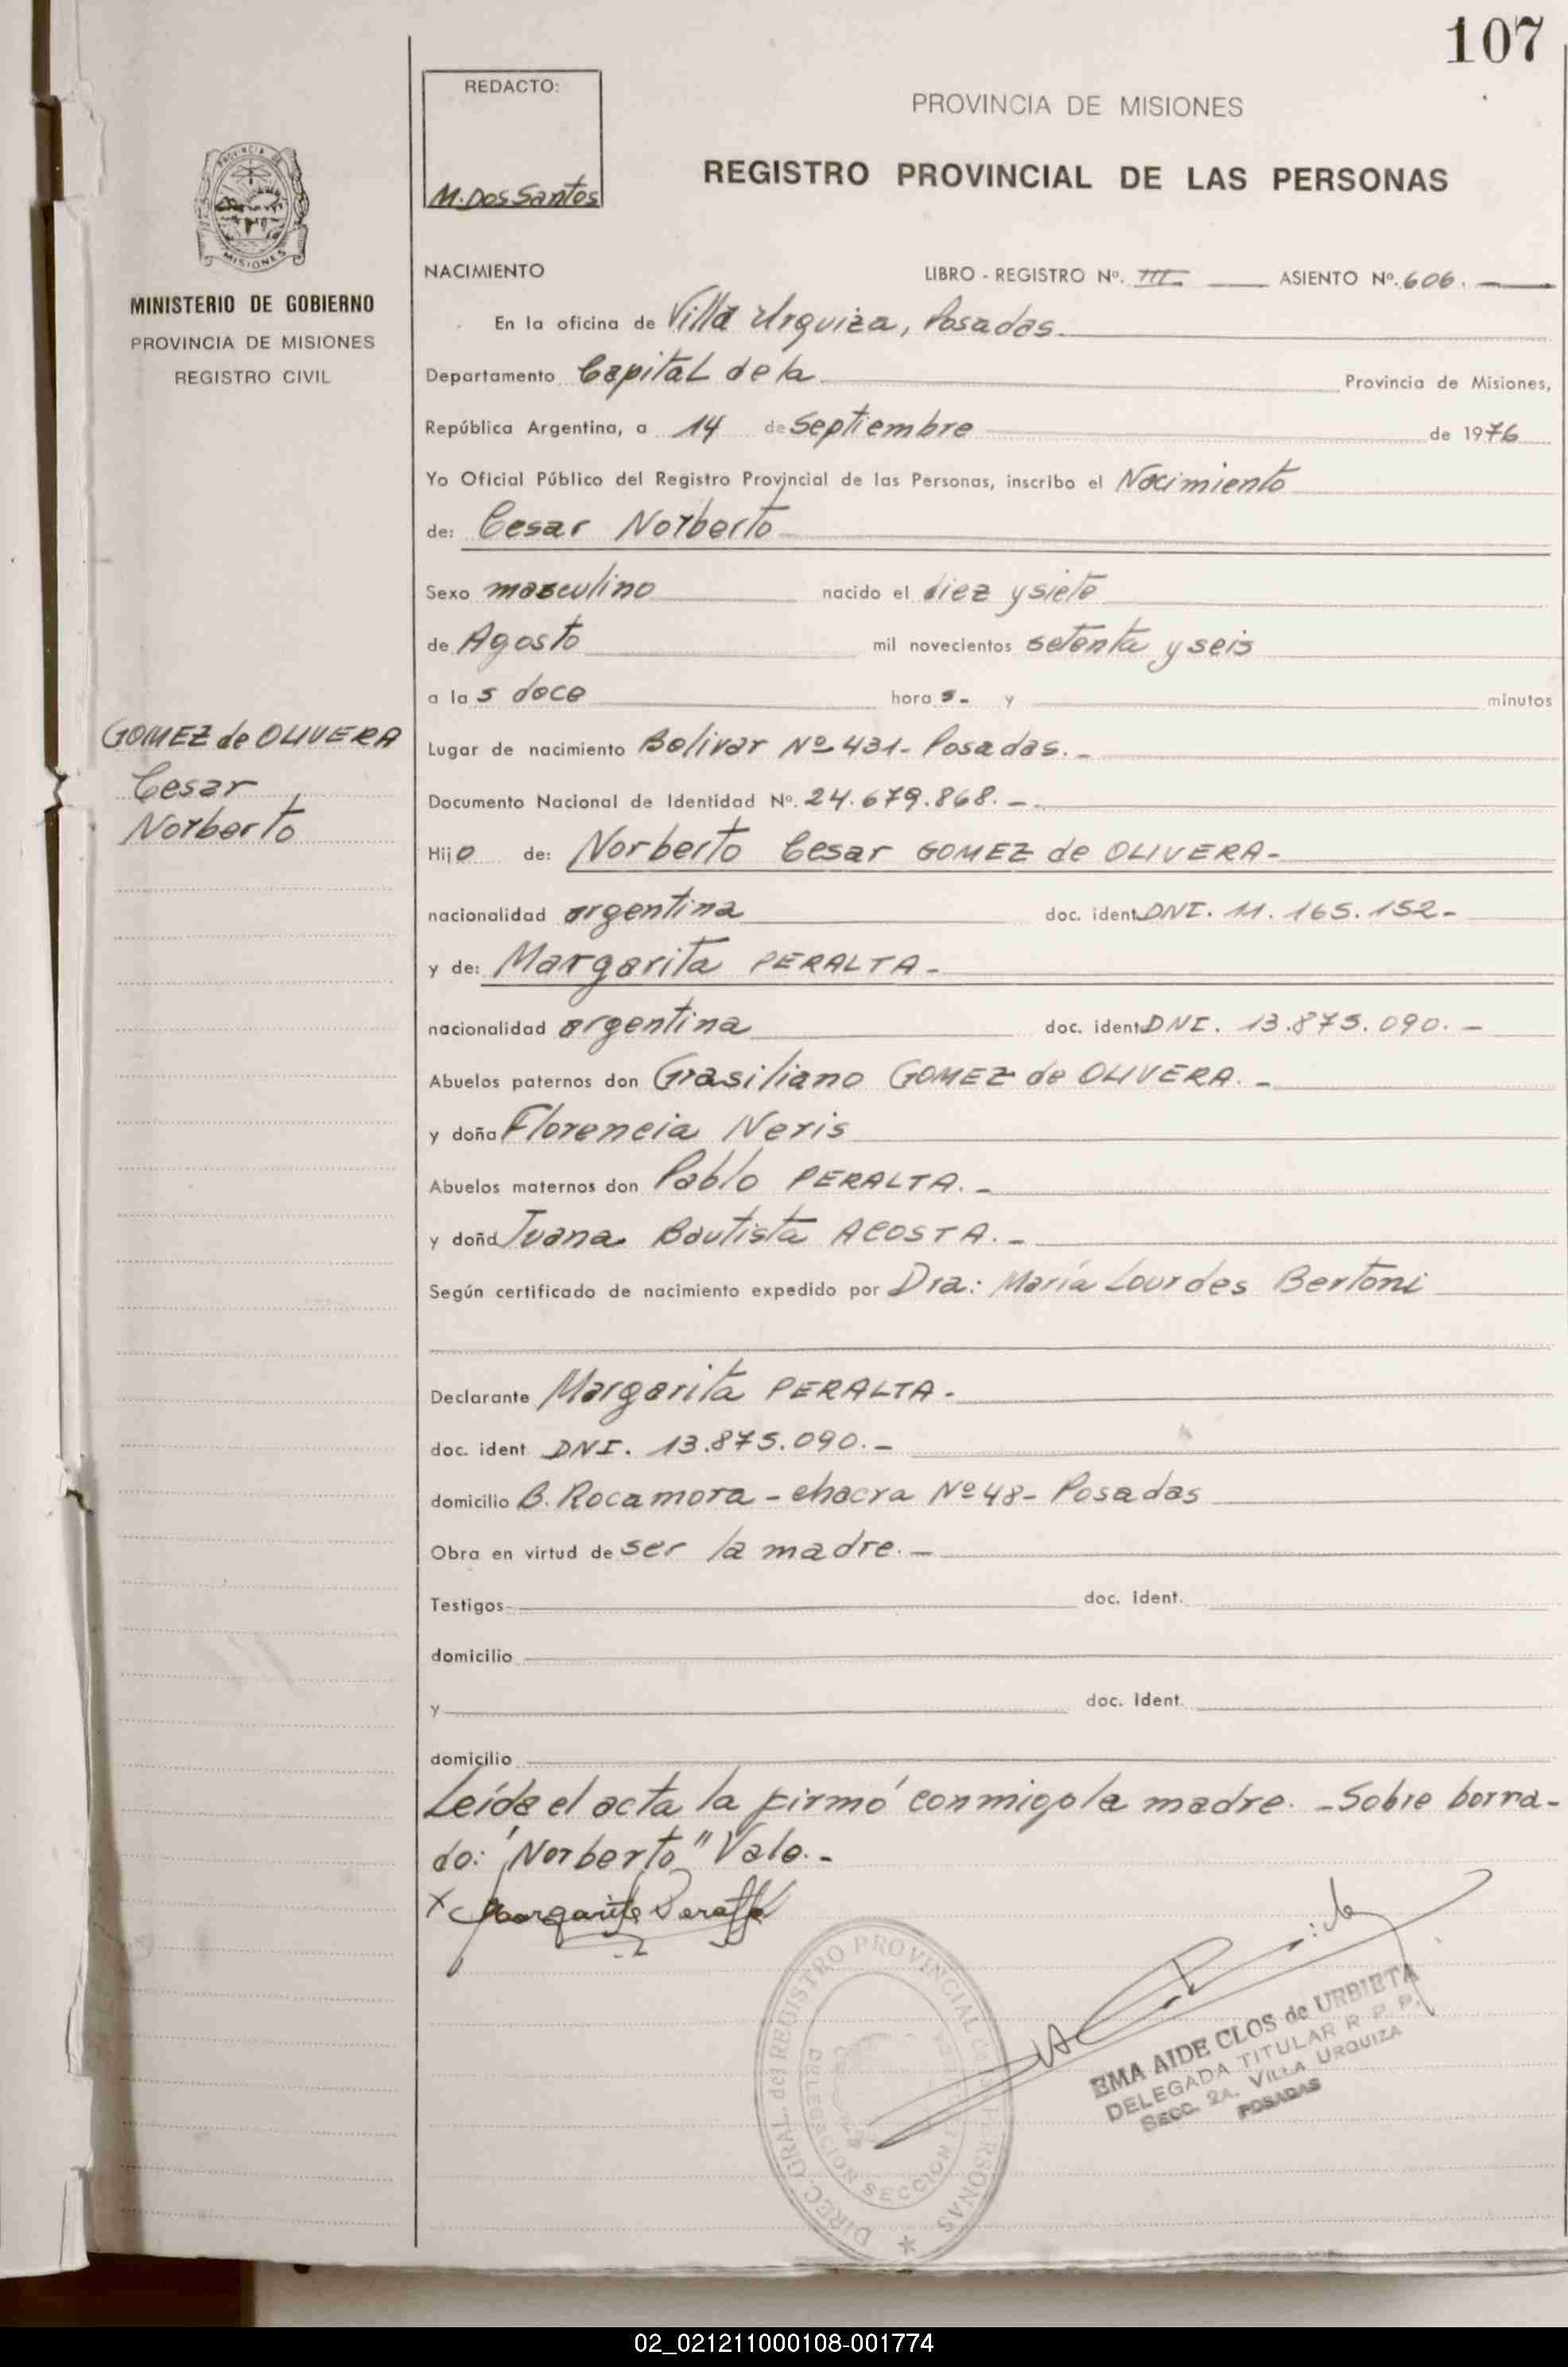 107
REDACTO:
M. Dos Santos
PROVINCIA DE MISIONES
REGISTRO PROVINCIAL DE LAS PERSONAS
PROVINCIA DE
MISIONES
MINISTERIO DE GOBIERNO
PROVINCIA DE MISIONES
REGISTRO CIVIL
NACIMIENTO LIBRO - REGISTRO Nº. III ASIENTO Nº. 606.
En la oficina de Villa Urquiza, Posadas.
Departamento Capital de la Provincia de Misiones,
República Argentina, a 14 de Septiembre de 1976
Yo Oficial Público del Registro Provincial de las Personas, inscribo el Nacimiento
de: Cesar Norberto
Sexo masculino nacido el diez y siete
de Agosto mil novecientos setenta y seis
a las doce horas.- y minutos
GOMEZ de OLIVERA
Cesar
Norberto
Lugar de nacimiento Bolivar Nº 431- Posadas.-
Documento Nacional de Identidad Nº. 24.679.868.-
Hijo de: Norberto Cesar GOMEZ de OLIVERA-
nacionalidad argentina doc. ident. DNI. 11.165.152-
y de: Margarita PERALTA-
nacionalidad argentina doc. ident. DNI. 13.875.090.-
Abuelos paternos don Grasiliano GOMEZ de OLIVERA.-
y doña Florencia Neris
Abuelos maternos don Pablo PERALTA.-
y doña Juana Bautista ACOSTA.-
Según certificado de nacimiento expedido por Dra: María Lourdes Bertoni
Declarante Margarita PERALTA.
doc. ident. DNI. 13.875.090.-
domicilio B. Rocamora - chacra Nº 48- Posadas
Obra en virtud de ser la madre.-
Testigos doc. ident.
domicilio
y doc. ident.
domicilio
Leída el acta la firmó conmigo la madre. -Sobre borra-
do: "Norberto" Vale.-
x Margarita Peralta
DIREC. GRAL. del REGISTRO PROVINCIAL de las PERSONAS
DELEGACION SECCION
EMA AIDE CLOS de URBIETA
DELEGADA TITULAR R. P. P.
SECC. 2A. VILLA URQUIZA
POSADAS
02_021211000108-001774